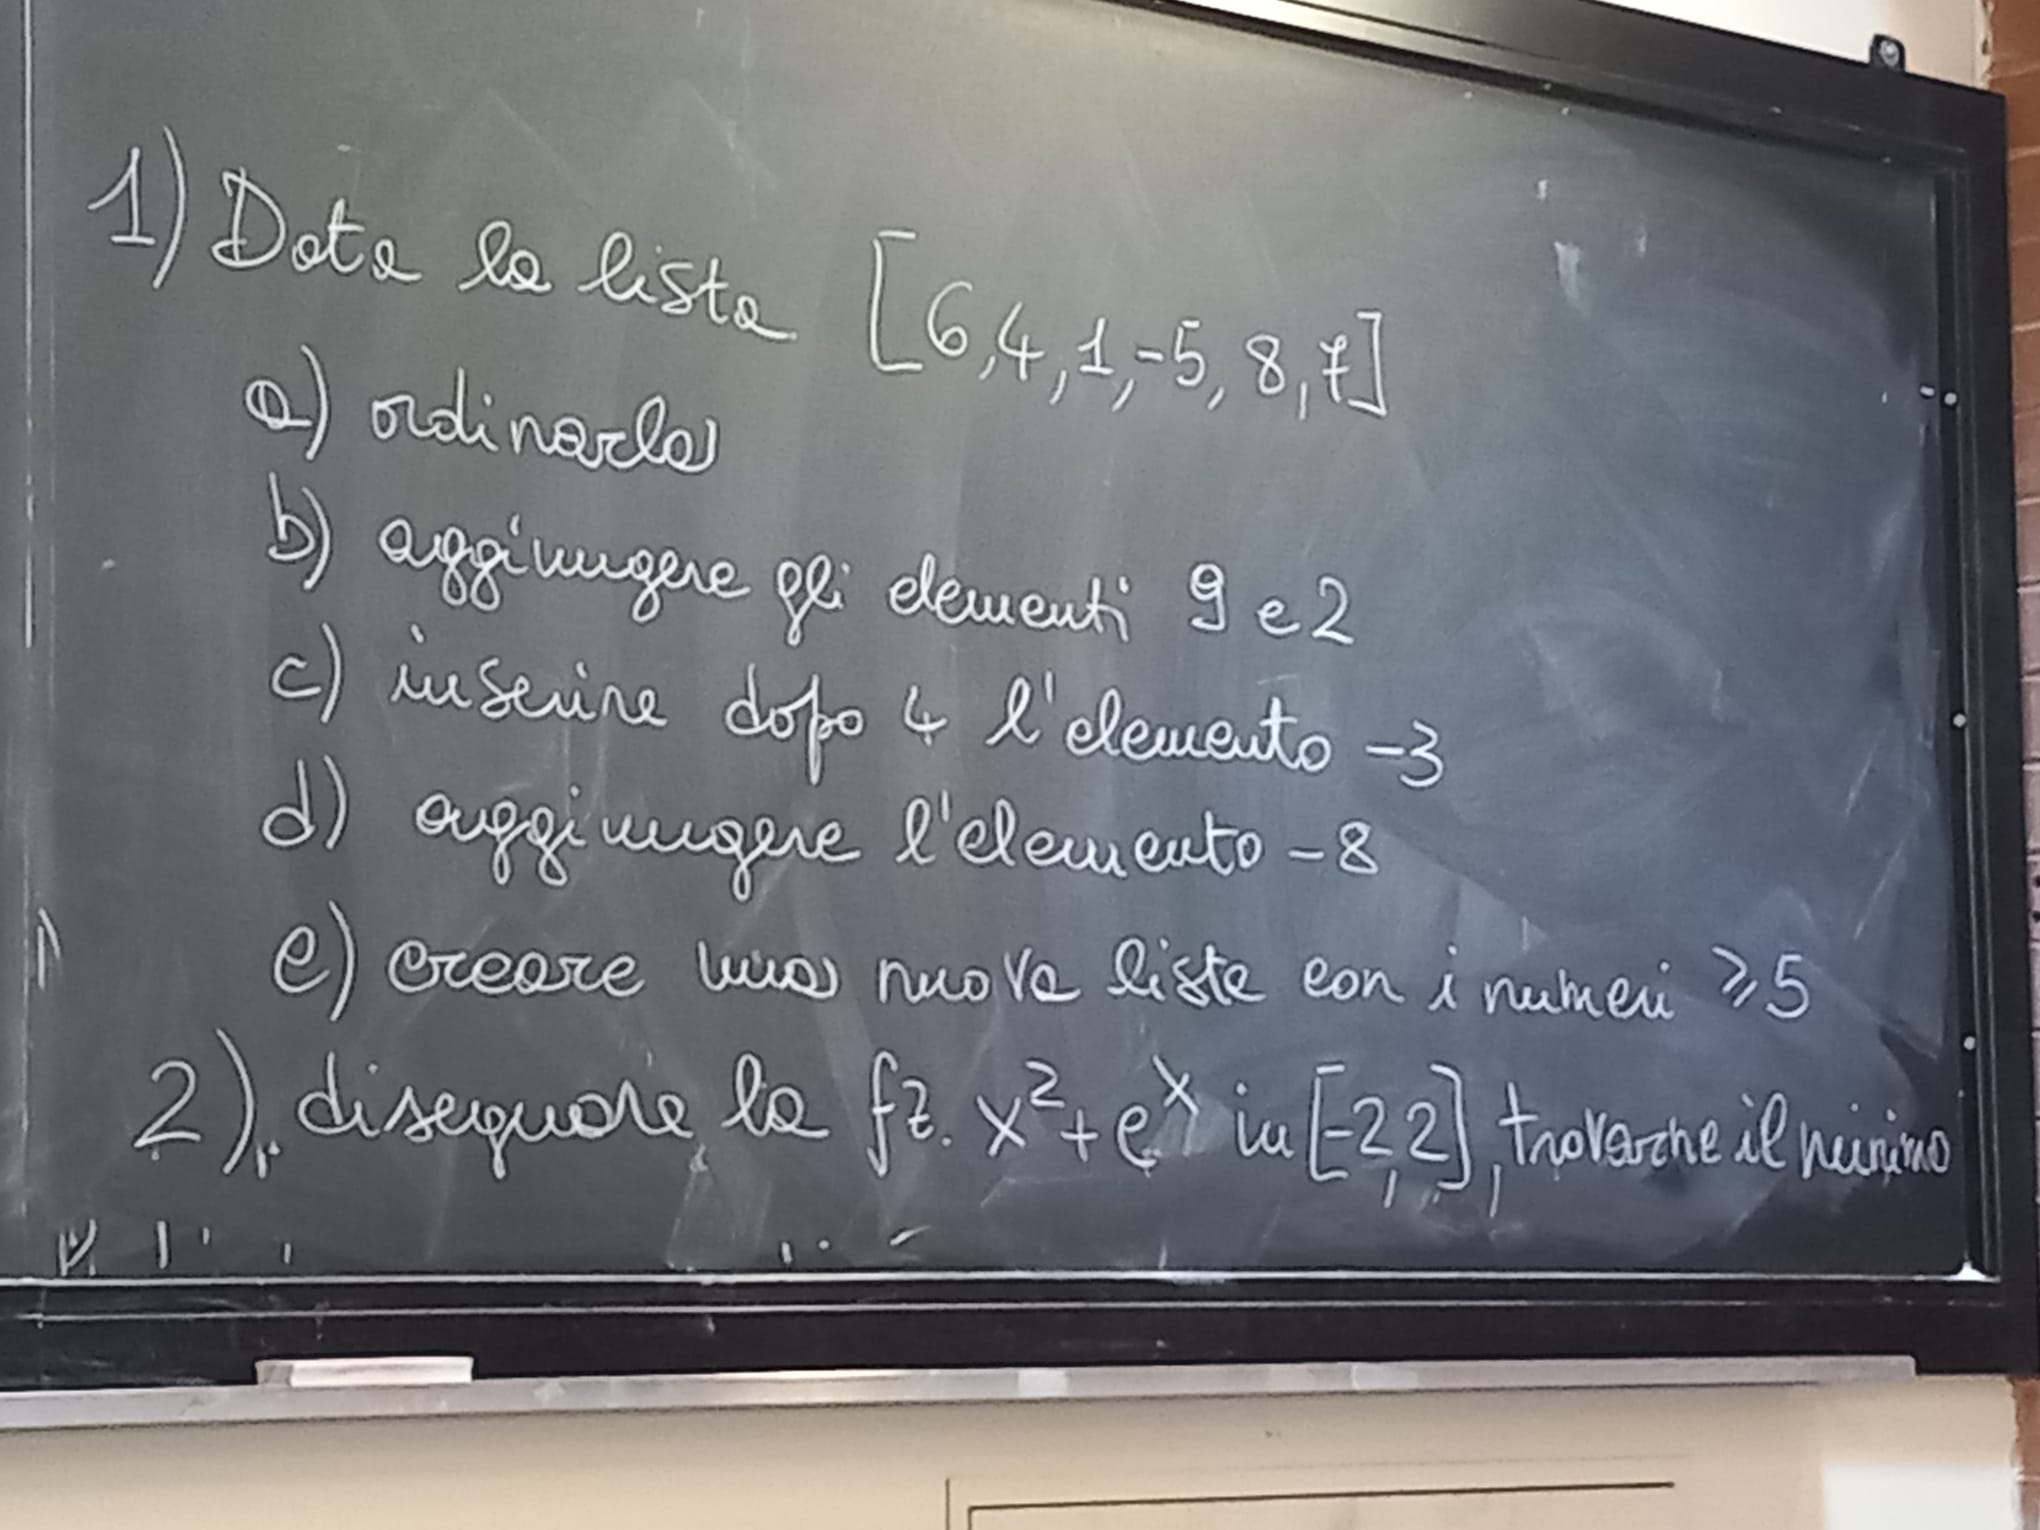 1) Data la lista [6,4,1,-5,8,7]
a) ordinarla
b) aggiungere gli elementi 9 e 2
c) inserire dopo 4 l'elemento -3
d) aggiungere l'elemento -8
e) creare una nuova lista con i numeri ⩾5
2) disegnare la fz. x²+eˣ in [-2,2], trovarne il minimo